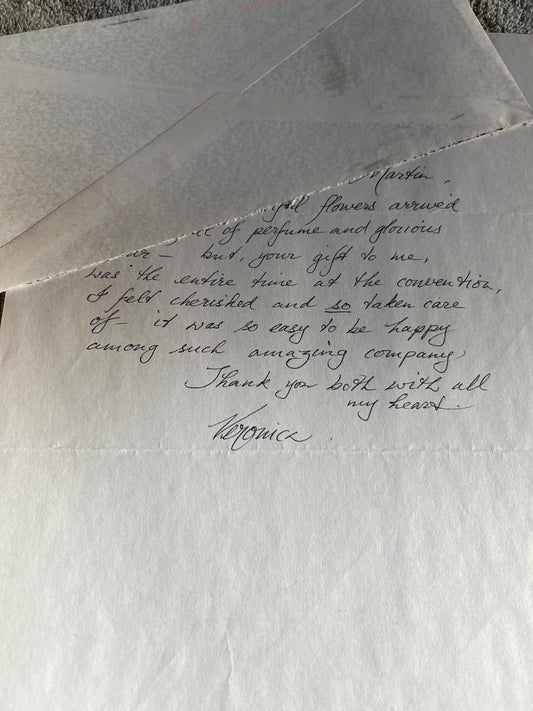 Martin,
flowers arrived
of perfume and glorious
— but, your gift to me,
was the entire time at the convention,
I felt cherished and so taken care
of – it was so easy to be happy
among such amazing company
Thank you both with all
my heart.
Veronica.